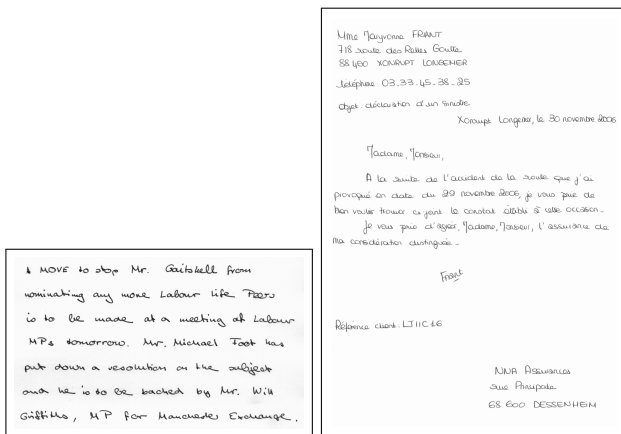 A MOVE to stop Mr. Gaitskell from
nominating any more Labour Life Peers
is to be made at a meeting of Labour
MPs tomorrow. Mr. Michael Foot has
put down a resolution on the subject
and he is to be backed by Mr. Will
Griffiths, MP for Manchester Exchange.
Mme Maryvonne FRIANT
718 route des Relles Goutte
88400 XONRUPT LONGEMER
téléphone 03.33.45.38.25
Objet: déclaration d'un sinistre
Xonrupt Longemer, le 30 novembre 2006
Madame, Monsieur,
A la suite de l'accident de la route que j'ai
provoqué en date du 29 novembre 2006, je vous prie de
bien vouloir trouver ci joint le constat établi à cette occasion.
Je vous prie d'agréer, Madame, Monsieur, l'assurance de
ma considération distinguée.
Friant
Référence client: LJIIC16
NNA Assurances
rue Principale
68 600 DESSENHEIM